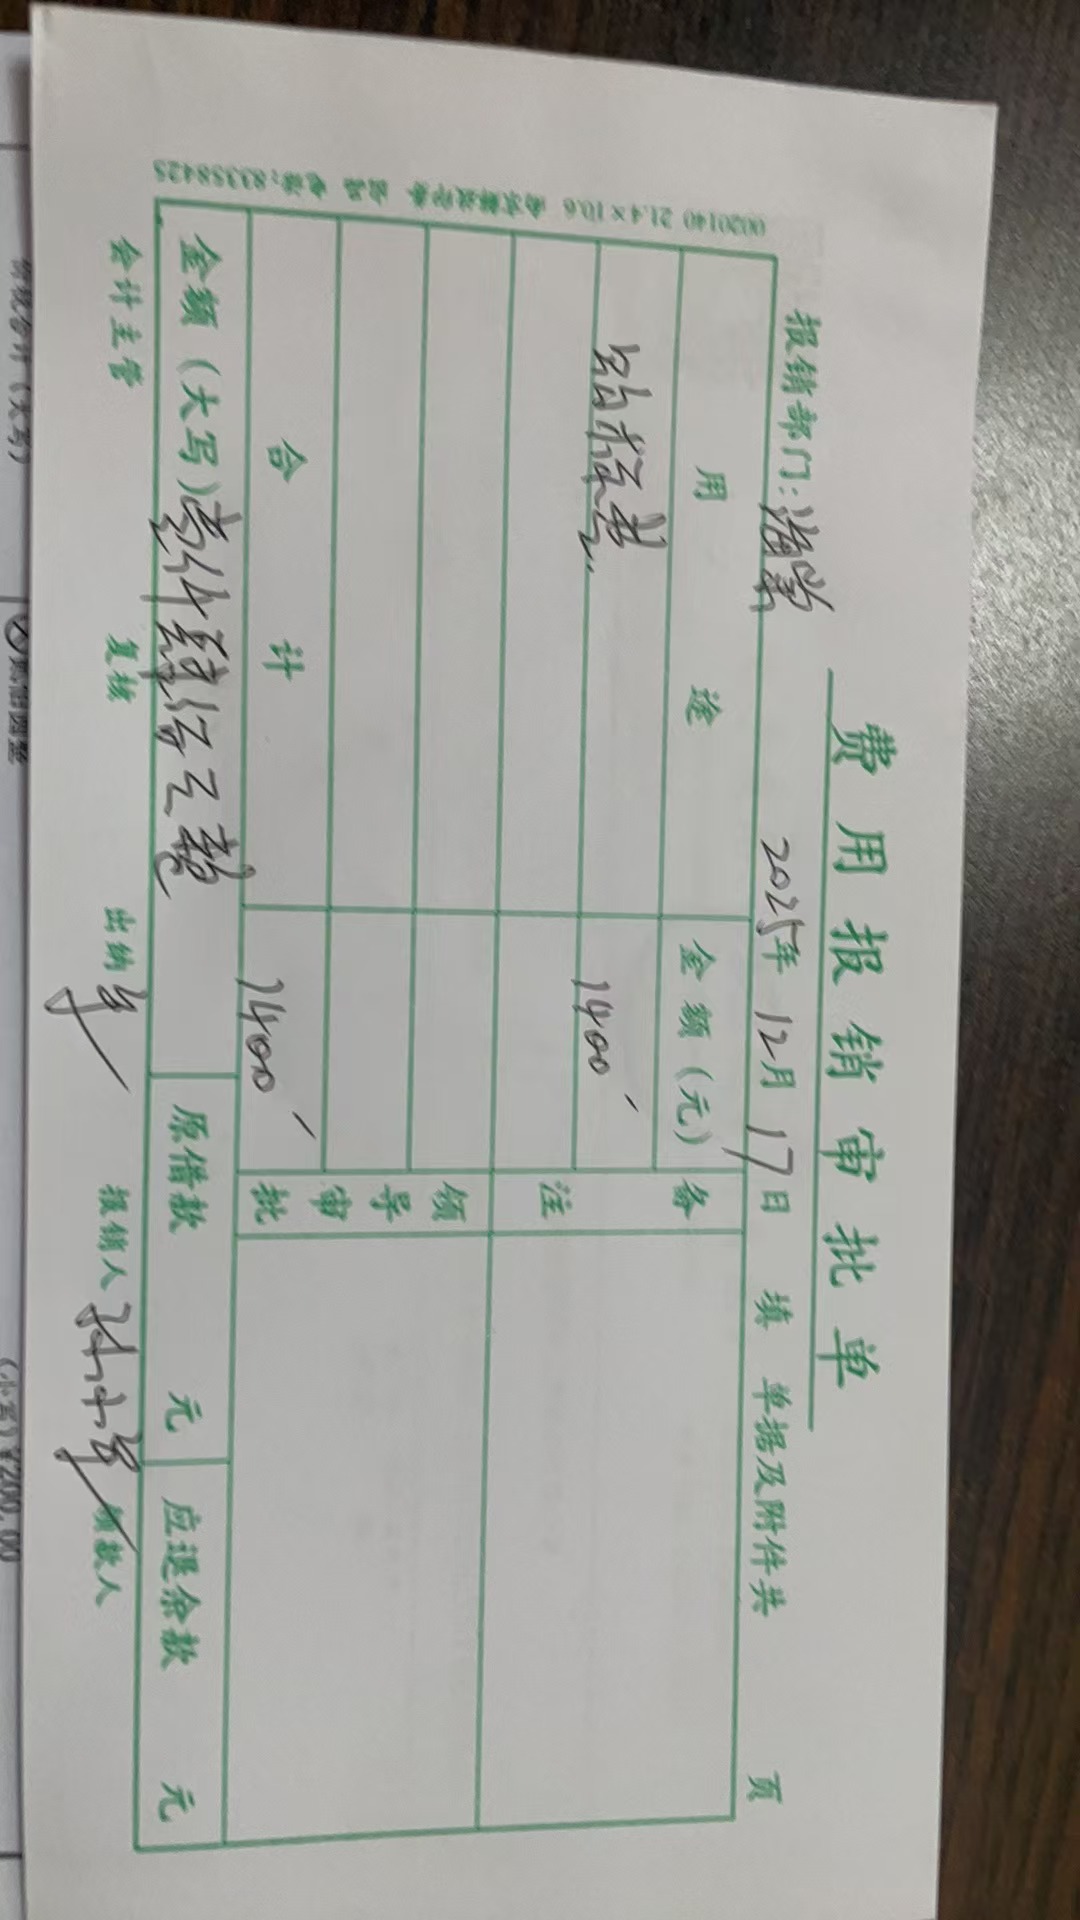 费用报销审批单
报销部门：海棠 2025年12月17日 填 单据及附件共 页
用途 金额（元） 备注
1400
领导审批
合计 1400
金额（大写）壹仟肆佰元整 原借款 元 应退余款 元
会计主管 复核 出纳 报销人 领款人
0020140 21.4×10.6 电话：83358425
(小写)¥200.00
价税合计（大写）